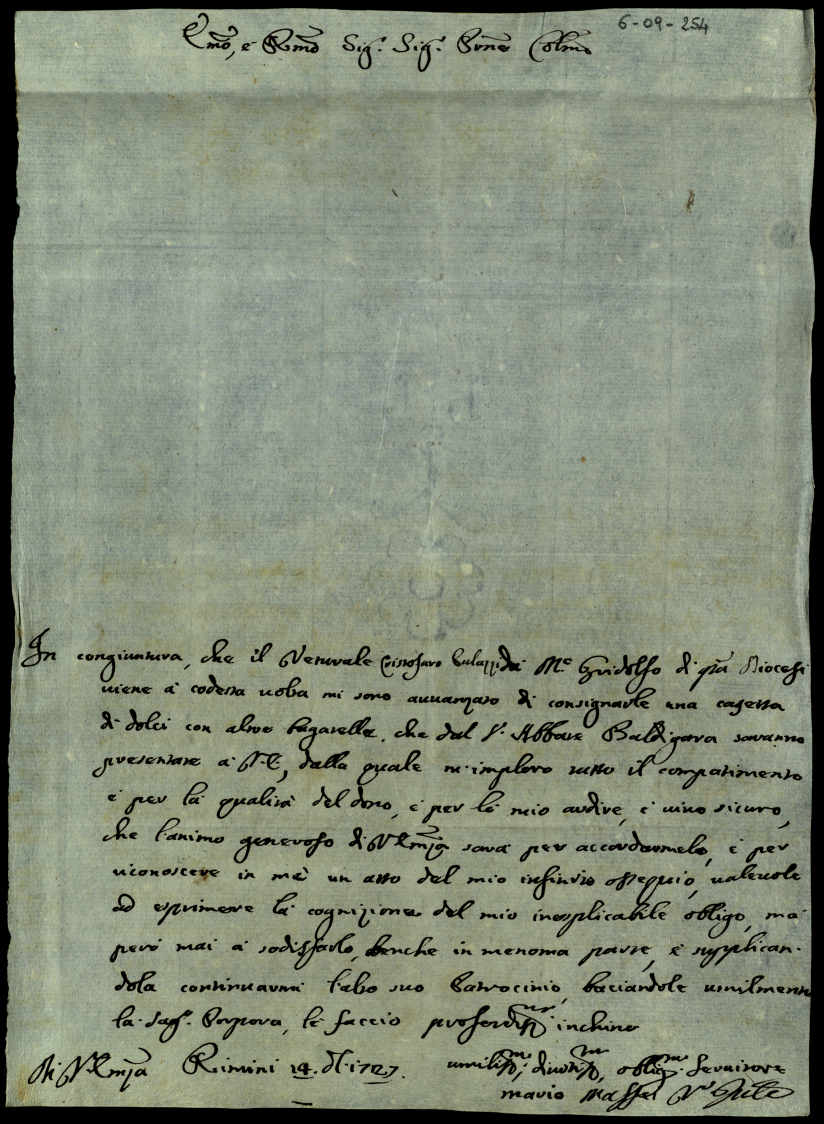 6-09-254
Emo, e Rmo Sig.r Sig.r Prne Colmo
In congiuntura, che il Vetturale Cristofaro da M.e Gridolfo di qta Diocesi
viene a codesta volta mi sono avvanzato di consignarle una casetta
di dolci con altre bagatelle, che dal S.r Abbate Baldigara saranno
presentate a V.E., dalla quale n'imploro tutto il compatimento
e per la qualità del dono, e per lo mio ardire, e vivo sicuro,
che l'animo generoso di V. Emza sarà per accordarmelo, e per
riconoscere in me un atto del mio infinito ossequio, valevole
ad esprimere la cognizione del mio inesplicabile obligo, ma
però mai a sodisfarlo, benche in menoma parte, e supplican-
dola continuarmi l'alto suo Patrocinio, baciandole umilmente
la Sag.a Porpora, le faccio profondissmo inchino
Di V. Emza Rimini 14 1727.
umilissmo, divotissmo, obligmo Servitore